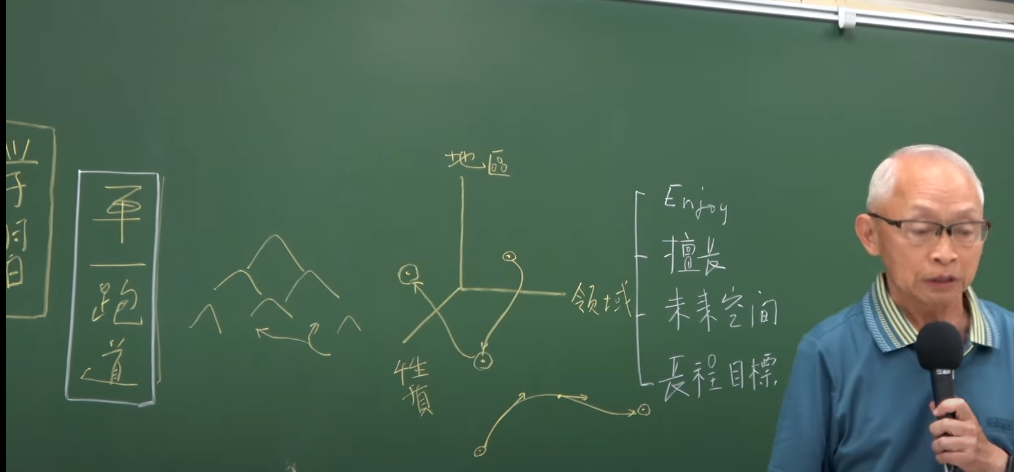 單一跑道
地區
領域
性質
Enjoy
擅長
未来空间
長程目標